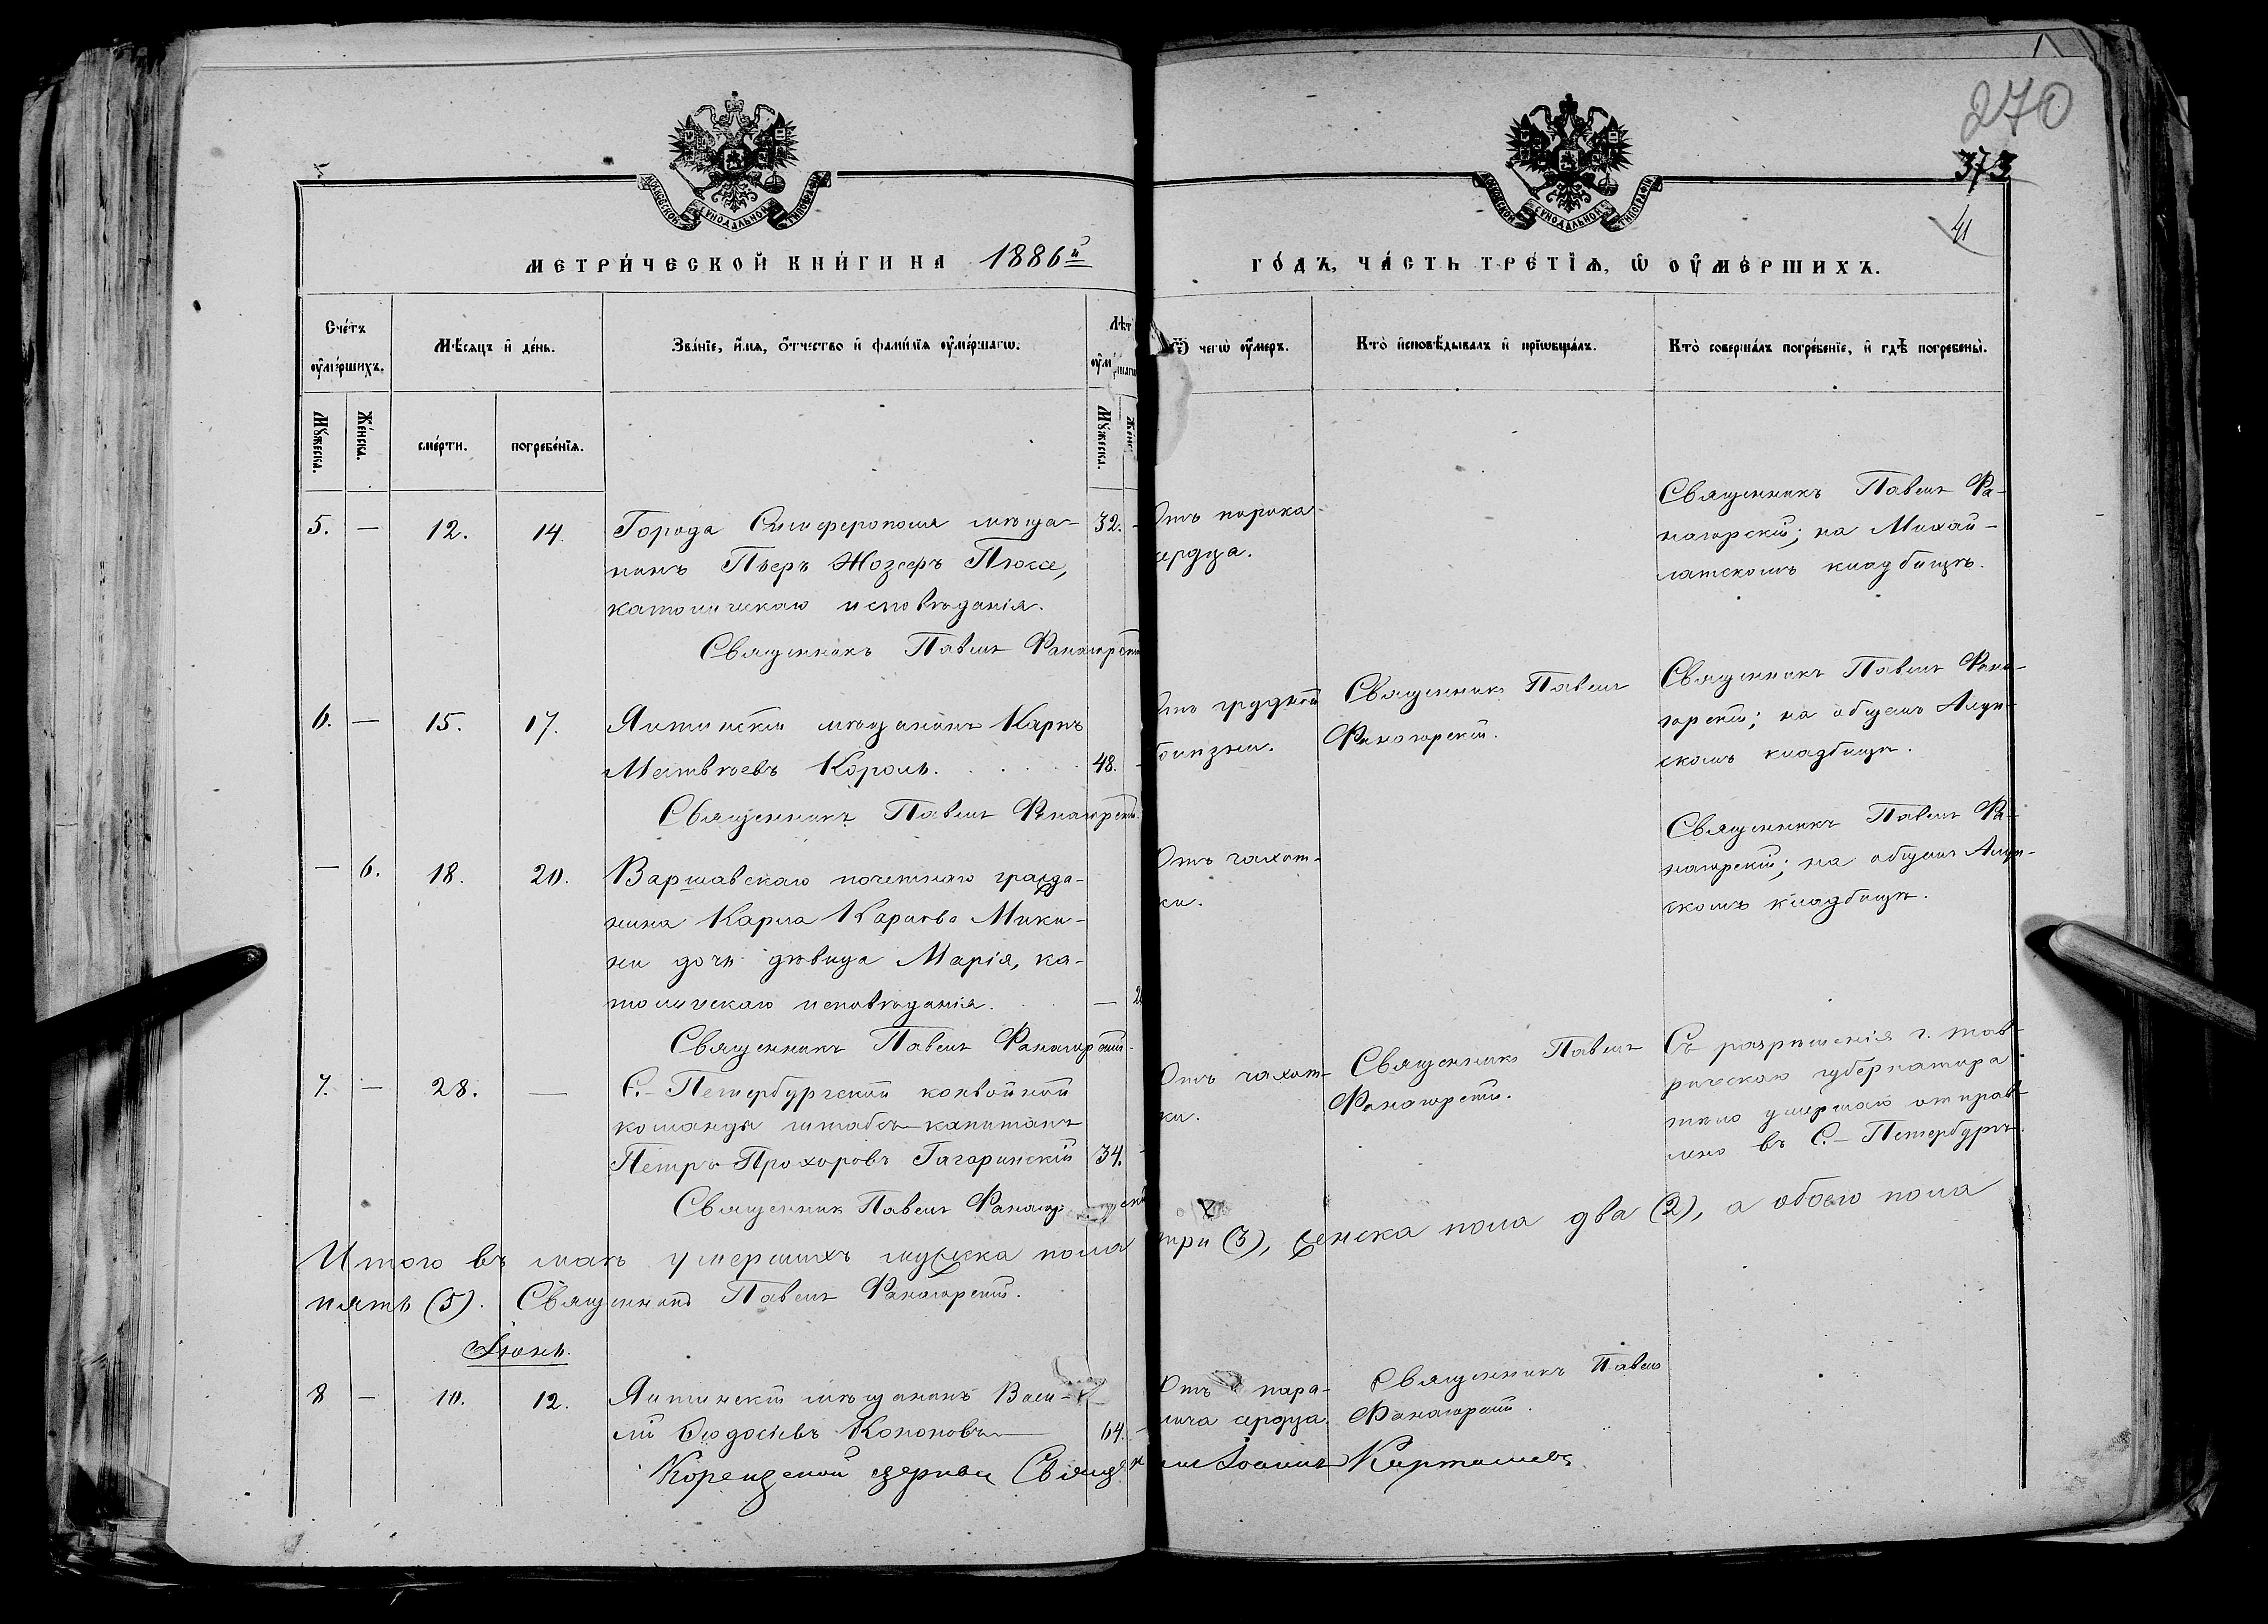 270
373
41
МОСКОВСКОЙ СѴНОДАЛЬНОЙ ТИПОГРАФІИ
МОСКОВСКОЙ СѴНОДАЛЬНОЙ ТИПОГРАФІИ
МЕТРИ́ЧЕСКОЙ КНИ́ГИ НА 1886й
ГО́ДЪ, ЧА́СТЬ ТРЕ́ТІѦ, Ѡ ОУ҆МЕ́РШИХЪ.
Сче́тъ оу҆ме́ршихъ.
Мѣ́сяцъ и҆ де́нь.
Зва́нїе, и҆́мя, ѻ҆́тчество и҆ фами́лїя оу҆ме́ршагѡ.
Лѣт
оу҆ме́ршагѡ
Ѿ чегѡ̀ оу҆́меръ.
Кто̀ и҆сповѣ́дывалъ и҆ прїѡбща́лъ.
Кто̀ соверша́лъ погребе́нїе, и҆ гдѣ̀ погребены̀.
Мꙋ́жеска.
Же́нска.
сме́рти.
погребе́нїя.
Мꙋ́жеска.
Же́нс
5. — 12. 14. Города Симферополя мѣща- 32.
нинъ Пьеръ Жозефъ Плюссе,
католическаго исповѣданія.
Священникъ Павелъ Фанагорскій
Отъ порока
сердца.
Священникъ Павелъ Фа-
нагорскій; на Михай-
латскомъ кладбищѣ.
6. — 15. 17. Ялтинскій мѣщанинъ Карпъ
Матвѣевъ Король. 48.
Священникъ Павелъ Фанагорскій.
Отъ грудной
болѣзни.
Священникъ Павелъ
Фанагорскій.
Священникъ Павелъ Фана-
горскій; на общемъ Алуп-
скомъ кладбищѣ.
— 6. 18. 20. Варшавскаго почетнаго гражда-
нина Карла Карлова Мики-
ни дочь дѣвица Марія, ка-
толическаго исповѣданія. — 2
Священникъ Павелъ Фанагорскій.
Отъ чахот-
ки.
Священникъ Павелъ Фа-
нагорскій; на общемъ Алуп-
скомъ кладбищѣ.
7. — 28. — С.-Петербургской конвойной
команды штабсъ-капитанъ
Петръ Прохоровъ Гагаринскій 34.
Священник Павелъ Фанагорскій
Отъ чахот-
ки.
Священникъ Павелъ
Фанагорскій.
Съ разрѣшенія г. тав-
рическаго губернатора
тѣло умершаго отправ-
лено въ С.-Петербургъ.
Итого въ маѣ умершихъ мужска пола три (3), женска пола два (2), а обоего пола
пять (5). Священникъ Павелъ Фанагорскій.
Іюнь.
8 — 10. 12. Ялтинскій мѣщанинъ Васи-
лій Ѳеодосіевъ Кононовъ 64.
Отъ пара-
лича сердца.
Священникъ Павелъ
Фанагорскій.
Кореизской церкви Священникъ Іоаннъ Карташевъ